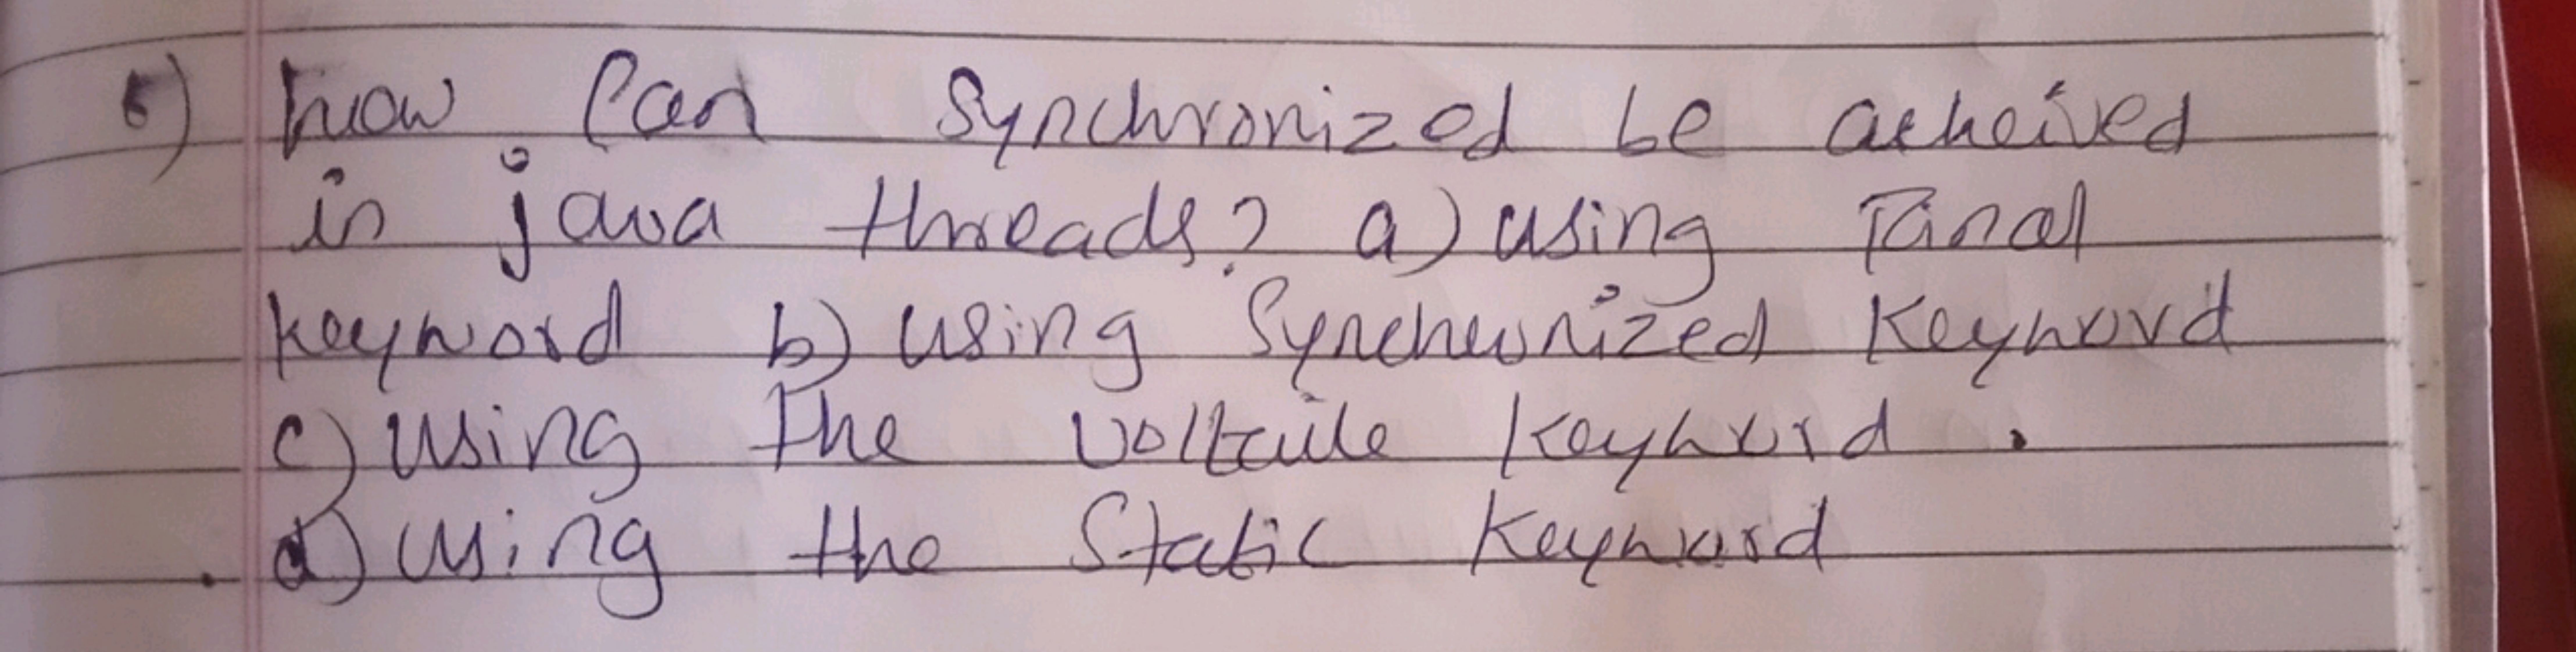 5) how can synchronized be acheived
in java threads? a) using Final
keyword b) using Syncheronized Keyword
c) using The Voltaile Keyword.
d) using the Static Keyword